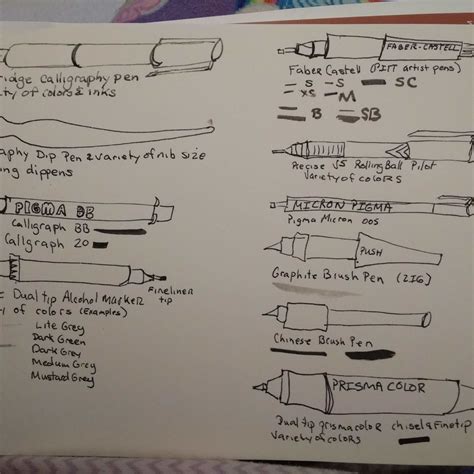 ridge Calligraphy Pen
ty of colors & inks
aphy Dip Pen & variety of nib size
ong dip pens
PIGMA BB
Calligraph BB
Calligraph 20
Fineliner
tip
Dual tip Alcohol Marker
y of colors (examples)
Lite Grey
Dark Green
Dark Grey
Medium Grey
Mustard Grey
FABER-CASTELL
Faber Castell (PITT artist pens)
S S SC
XS M
B SB
Precise V5 Rolling Ball Pilot
Variety of colors
MICRON PIGMA
Pigma Micron 005
PUSH
Graphite Brush Pen (ZIG)
Chinese Brush Pen
PRISMACOLOR
Dual tip prismacolor chisel & finetip
variety of colors